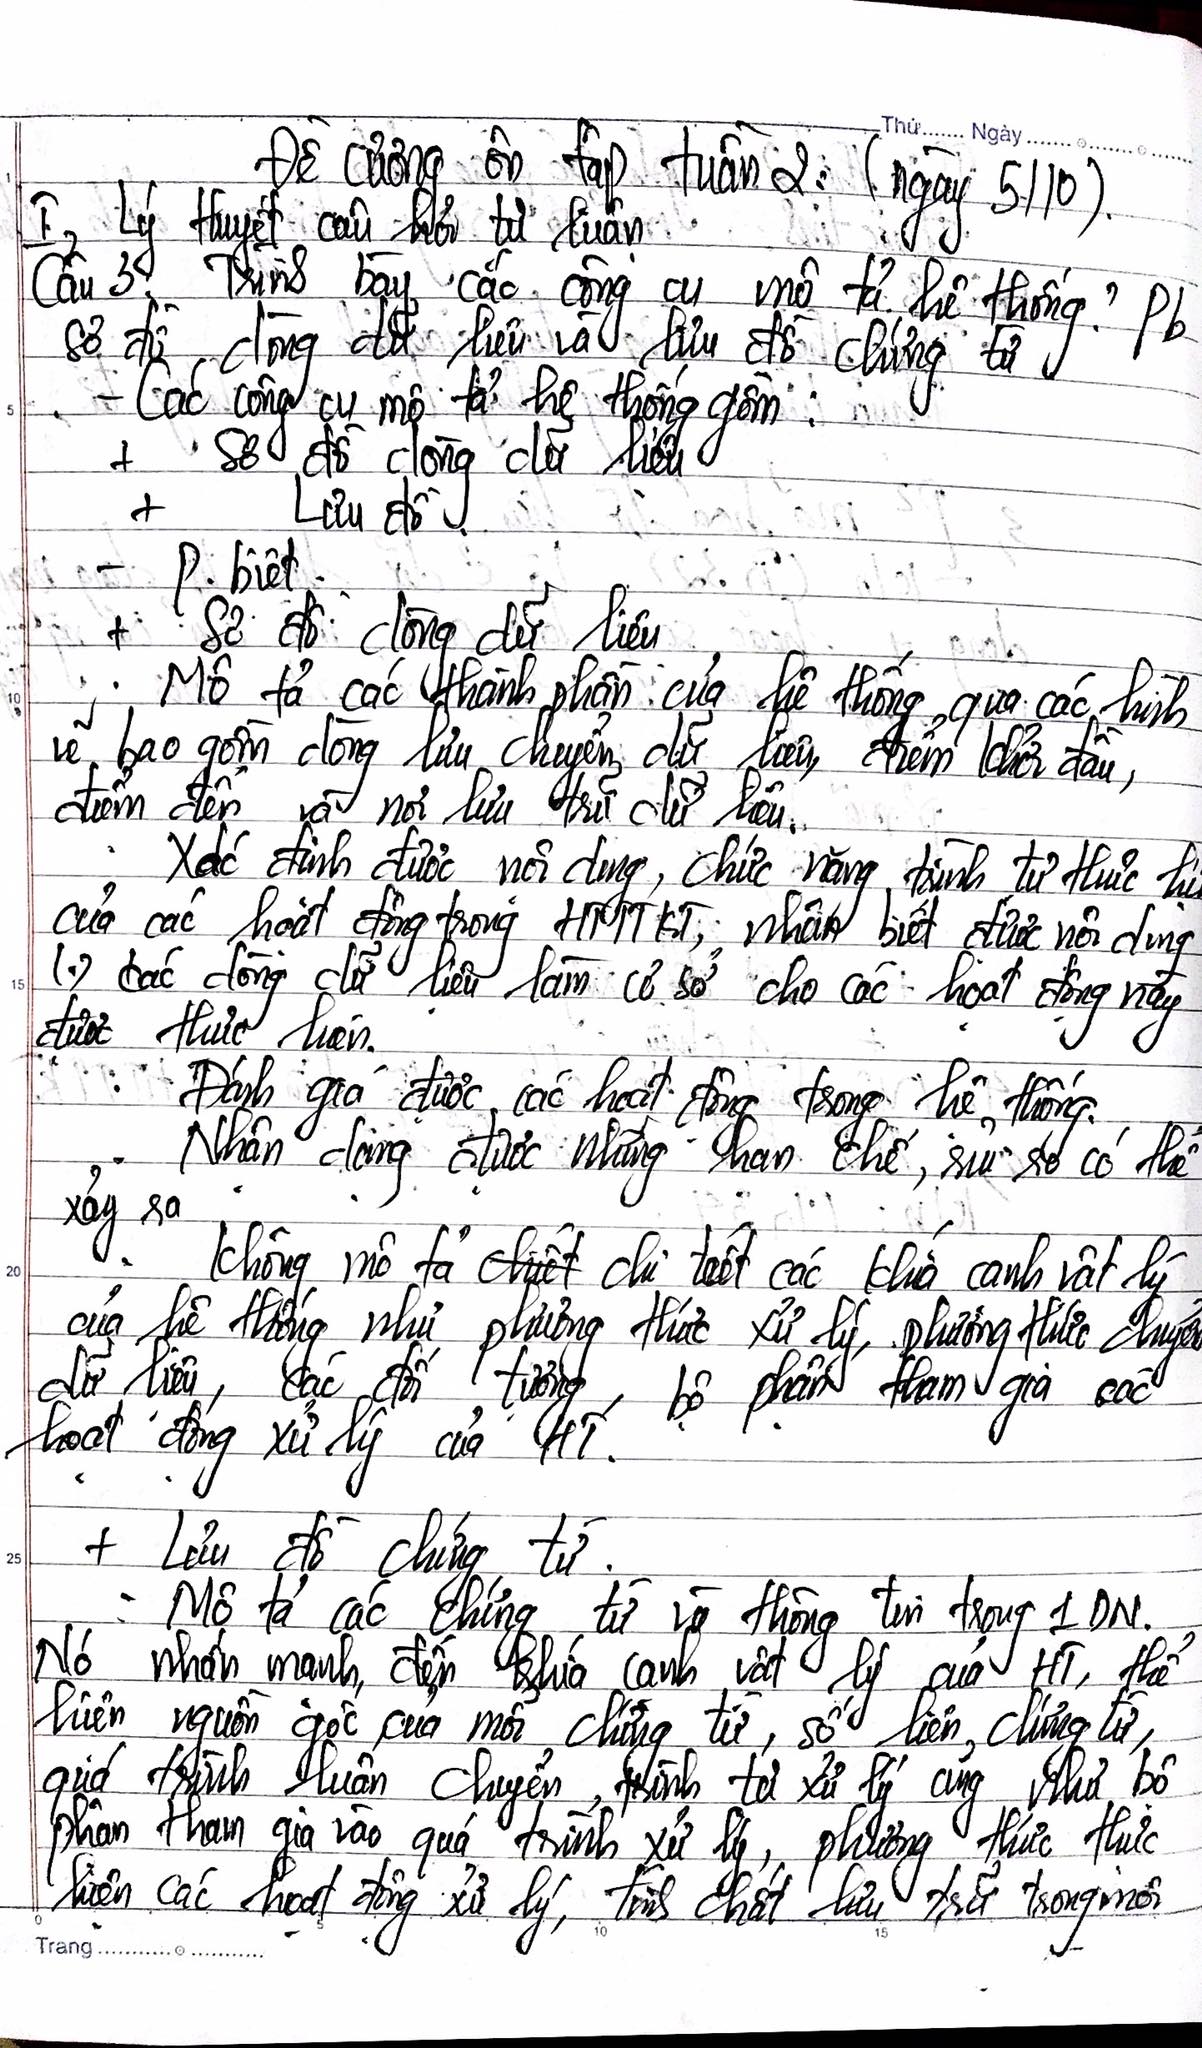 Thứ....... Ngày.......
Đề cương ôn tập tuần 2: (ngày 5/10).
I, Lý thuyết câu hỏi tự luận
Câu 3: Trình bày các công cụ mô tả hệ thống? Pb
sơ đồ dòng dữ liệu và lưu đồ chứng từ
- Các công cụ mô tả hệ thống gồm:
+ Sơ đồ dòng dữ liệu
+ Lưu đồ
- P. biệt.
+ Sơ đồ dòng dữ liệu
. Mô tả các thành phần của hệ thống qua các hình
vẽ bao gồm dòng lưu chuyển dữ liệu, điểm khởi đầu,
điểm đến và nơi lưu trữ dữ liệu.
. Xác định được nội dung, chức năng trình tự thực hiệ
của các hoạt động trong HTTTKT, nhận biết được nội dung
(.) các dòng dữ liệu làm cơ sở cho các hoạt động này
được thực hiện.
. Đánh giá được các hoạt động trong hệ thống.
. Nhận dạng được những hạn chế, rủi ro có thể
xảy ra
. Không mô tả chi tiết các khía cạnh vật lý
của hệ thống như phương thức xử lý, phương thức chuyển
dữ liệu, các đối tượng, bộ phận tham gia các
hoạt động xử lý của HT.
+ Lưu đồ chứng từ.
- Mô tả các chứng từ và thông tin trong 1 DN.
Nó nhấn mạnh đến khía cạnh vật lý của HT, thể
hiện nguồn gốc của mỗi chứng từ, số liên chứng từ,
quá trình luân chuyển, trình tự xử lý cũng như bộ
phận tham gia vào quá trình xử lý, phương thức thực
hiện các hoạt động xử lý, tính chất lưu trữ trong mỗi
Trang....................